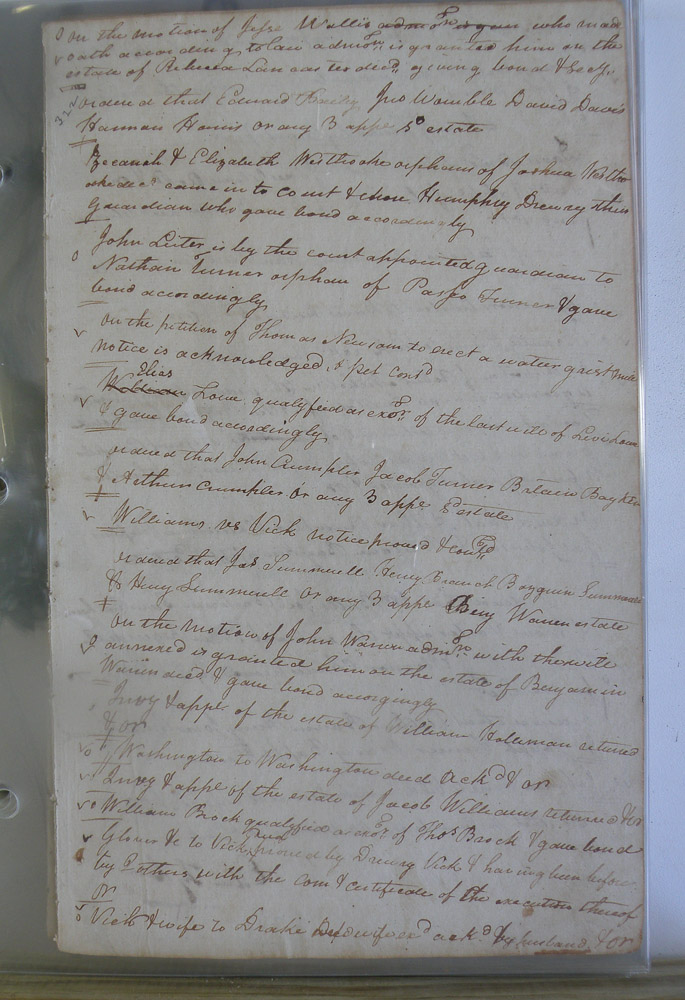 on the motion of Jesse Wallis admr. is gran who mad
oath according to law admr. is granted him on the
estate of Rebecca Lancaster decd. giving bond & Secy.
ordered that Edward Baily Jno Womble David Davis
Harmon Harris or any 3 appe sd estate
& Elizabeth Westbrooke orphans of Joshua Westbro
oke decd came in to Court & chose Humphry Drewry their
Guardian who gave bond accordingly
John Luter is by the court appointed guardian to
Nathan Turner orphan of Turner & gave
bond accordingly
on the petition of Thomas Newsom to erect a water grist mill
notice is acknowledged, & pet contd
Elias
William Love qualyfied as exor. of the last will of Levi Love
& gave bond accordingly
ordered that John Crumpler Jacob Turner Batain Boykin
& Arthur Crumpler or any 3 appe sd estate
Williams vs Vick notice proved & contd
ordered that Jas Summerell Henry Branch Summerell
& Heny Summerell or any 3 appe Benj Warren estate
on the motion of John Warren admr. with the will
annexed is granted him on the estate of Benjamin
Warren decd & gave bond accorgingly
Invy & appt of the estate of William Holleman returned
& or
Washington to Washington deed ackd & or
Invy & appt of the estate of Jacob Williams returned & or
William Brock qualyfied as exor. of Thos Brock & gave bond
Glover & c to Vick proved by Drewry Vick & having been before
by 2 others with the com & certificate of the execution thereof
or
Vick & wife to Drake ackd by husband & or